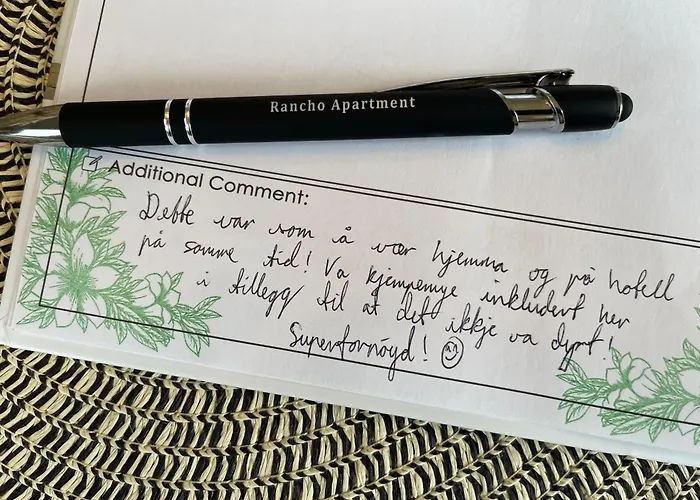 Rancho Apartment
Additional Comment:
Dette var som å vær hjemma og på hotell
på samme tid! Va kjempemye inkludert her
i tillegg til at det ikkje va dyrt!
Superfornøyd!